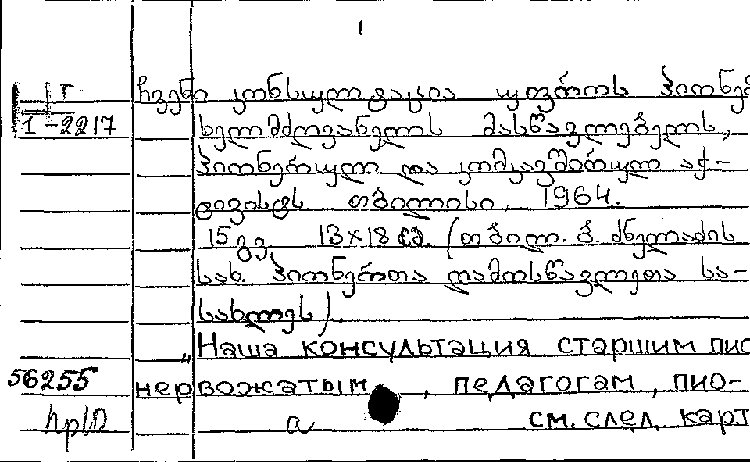 1
Г
1-2217
ჩვენი კონსულტაცია უფროს პიონერ
ხელმძღვანელს მასწავლებელს,
პიონერულ და კომკავშირულ აქ-
ტივისტს თბილისი, 1964.
15 გვ, 13×18 სმ. (თბილ. ბ. ძნელაძის
სახ. პიონერთა და მოსწავლეთა სა-
სახლეს).
„Наша консультация старшим пио
56255 нервожатым , педагогам, пио-
а см. след. карт